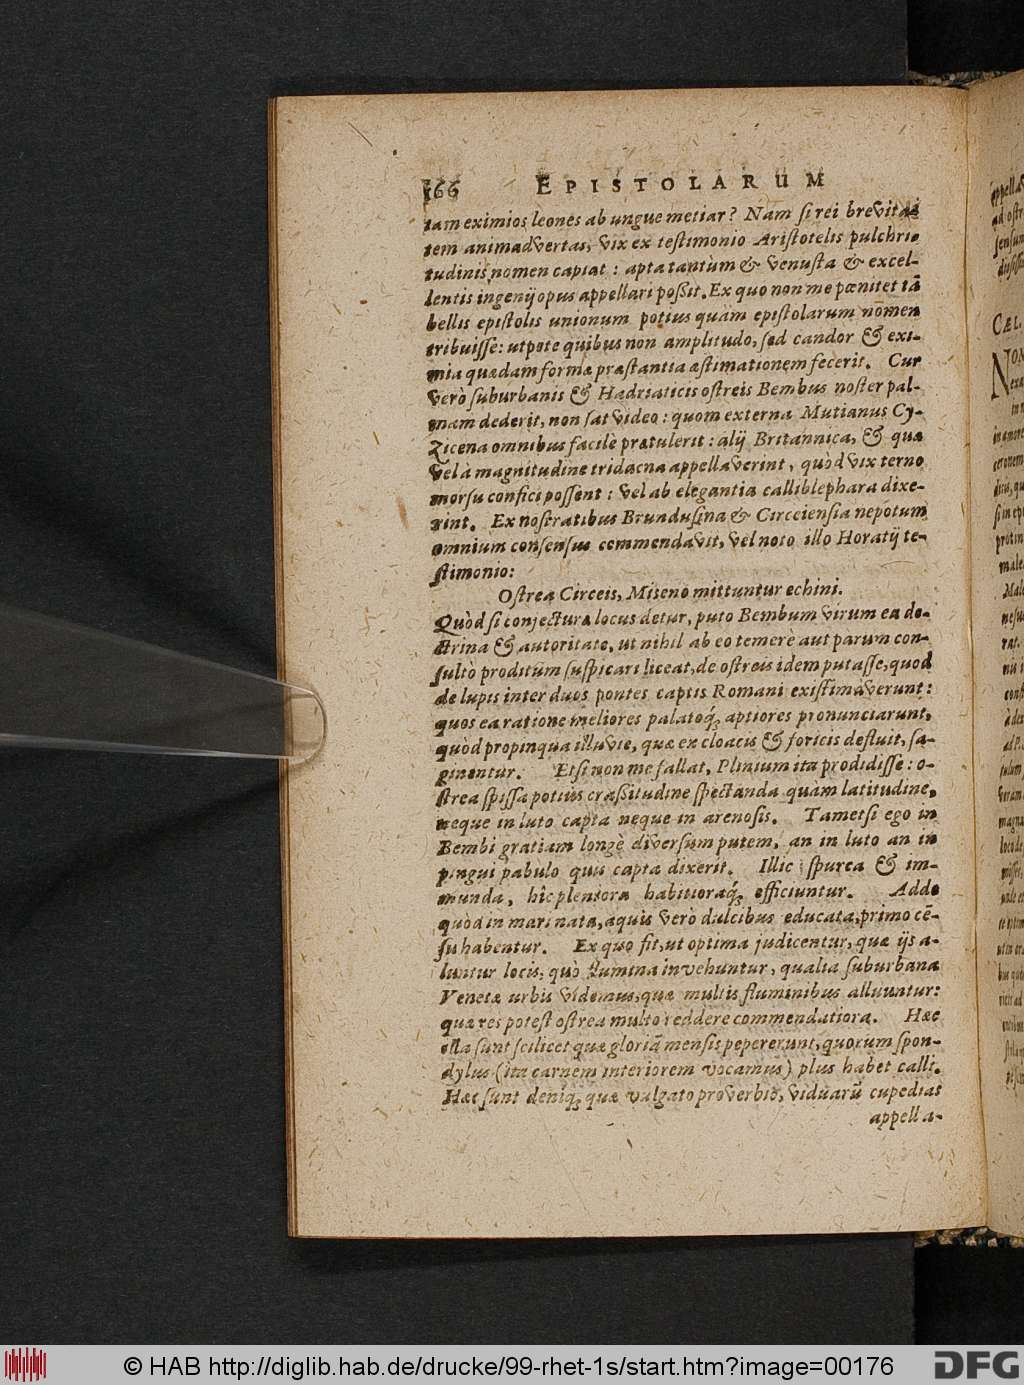 166 EPISTOLARUM
tam eximios leones ab ungue metiar? Nam si rei brevita-
tem animadvertas, vix ex testimonio Aristotelis pulchri-
tudinis nomen capiat: apta tantùm & venusta & excel-
lentis ingenij opus appellari poßit. Ex quo non me pœnitet tã
bellis epistolis unionum potius quàm epistolarum nomen
tribuisse: utpote quibus non amplitudo, sed candor & exi-
mia quædam formæ præstantia æstimationem fecerit. Cur
verò suburbanis & Hadriaticis ostreis Bembus noster pal-
mam dederit, non sat video: quom externa Mutianus Cy-
zicena omnibus facilè prætulerit: alij Britannica, & quæ
vel à magnitudine tridacna appellaverint, quòd vix terno
morsu confici possent: vel ab elegantia calliblephara dixe-
rint. Ex nostratibus Brundusina & Circeiensia nepotum
omnium consensus commendavit, vel noto illo Horatij te-
stimonio:
Ostrea Circeis, Miseno mittuntur echini.
Quòd si conjectura locus detur, puto Bembum virum ea do-
ctrina & autoritate, ut nihil ab eo temerè aut parum con-
sultò proditum suspicari liceat, de ostreis idem putasse, quod
de lupis inter duos pontes captis Romani existimaverunt:
quos ea ratione meliores palatoq́; aptiores pronunciarunt,
quòd propinqua illuvie, quæ ex cloacis & foricis defluit, sa-
ginentur. Etsi non me fallat, Plinium ita prodidisse: o-
strea spissa potius craßitudine spectanda quàm latitudine,
neque in luto capta neque in arenosis. Tametsi ego in
Bembi gratiam longè diversum putem, an in luto an in
pingui pabulo quis capta dixerit. Illic spurca & im-
munda, hîc pleniora habitioraq́; efficiuntur. Adde
quòd in mari nata, aquis verò dulcibus educata, primo cẽ-
su habentur. Ex quo fit, ut optima judicentur, quæ ijs a-
luntur locis, quò flumina invehuntur, qualia suburbana
Venetæ urbis videmus, quæ multis fluminibus alluuntur:
quæ res potest ostrea multo reddere commendatiora. Hæc
illa sunt scilicet quæ gloriã mensis pepererunt, quorum spon-
dylus (ita carnem interiorem vocamus) plus habet calli.
Hæc sunt deniq́; quæ vulgato proverbio, viduarũ cupedias
appella-
© HAB http://diglib.hab.de/drucke/99-rhet-1s/start.htm?image=00176 DFG